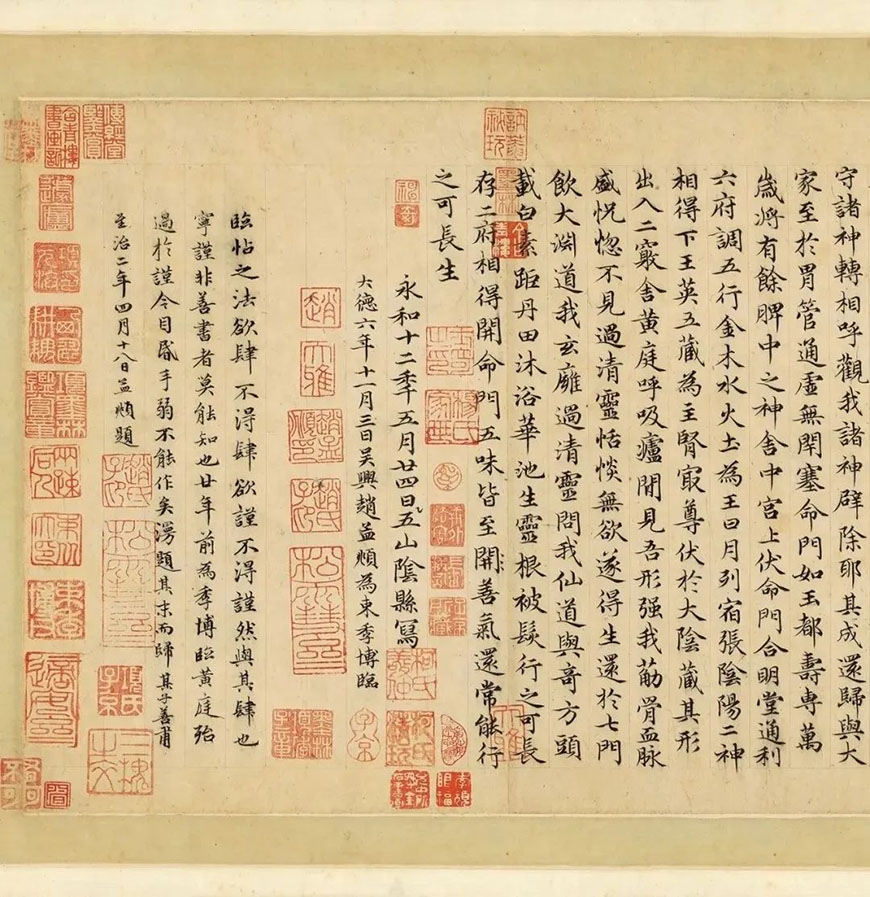 守諸神轉相呼觀我諸神辟除耶其成還歸與大
家至於胃管通虛無閇塞命門如玉都壽專萬
歲將有餘脾中之神舍中宮上伏命門合明堂通利
六府調五行金木水火土為王日月列宿張陰陽二神
相得下玉英五藏為主腎㝡尊伏於大陰藏其形
出入二竅舍黃庭呼吸廬間見吾形强我筋骨血脉
盛怳惚不見過清靈恬惔無欲遂得生還於七門
飲大淵道我玄廱過清靈問我仙道與奇方頭
載白素距丹田沐浴華池生靈根被髮行之可長
存二府相得開命門五味皆至開善氣還常能行
之可長生
永和十二年五月廿四日五山陰縣寫
大德六年十一月三日吳興趙孟頫為東季博臨
趙
大雅
趙孟頫印
趙氏子昂
松雪齋
臨帖之法欲肆不得肆欲謹不得謹然與其肆也
寧謹非善書者莫能知也廿年前為季博臨黃庭殆
過於謹今目昏手弱不能作矣漫題其末而歸其子善甫
至治二年四月十八日孟頫題